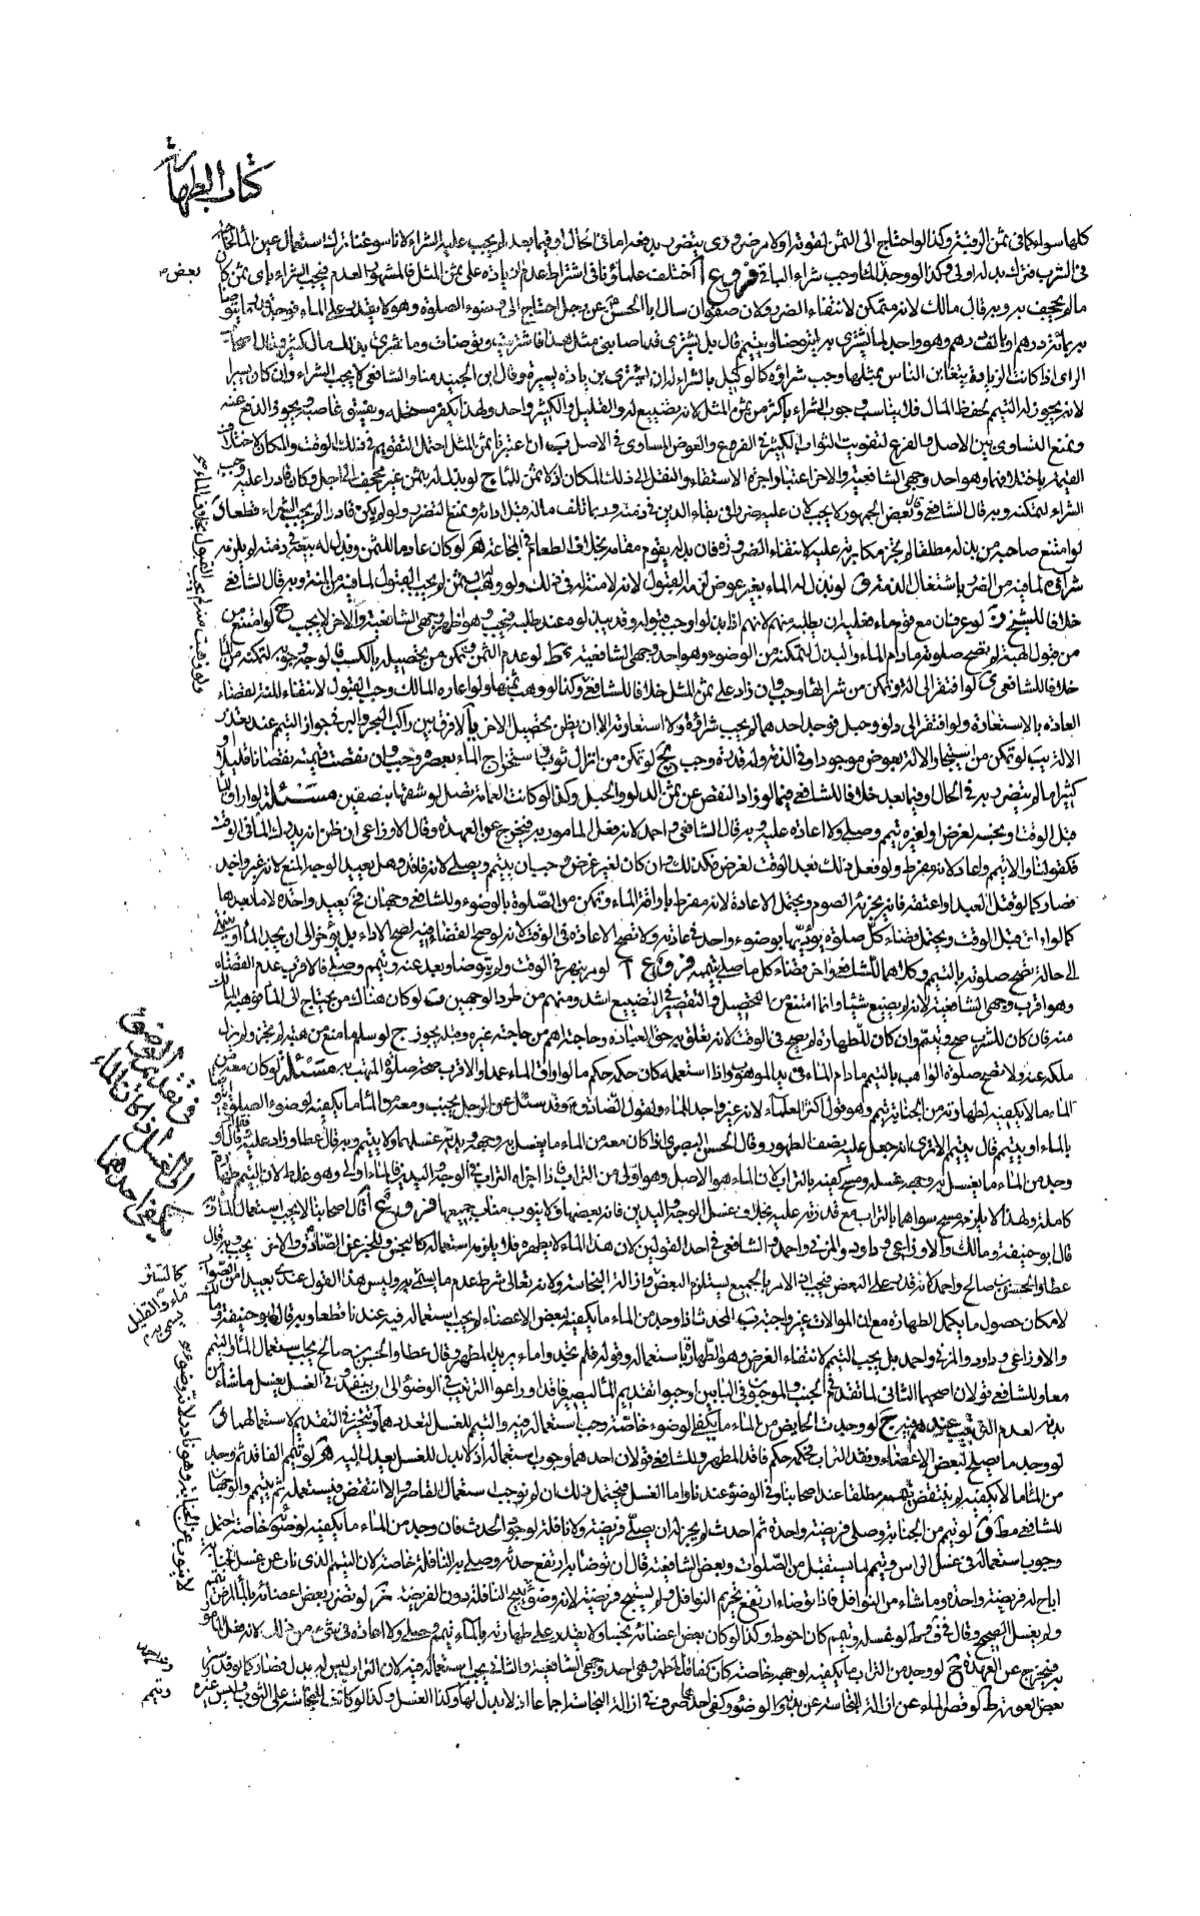 كتاب الطهارة
كلها سواء كما في ثمن الرقبة وكذا لو احتاج الى الثمن لقوته او لا مر ضروري يتضرر بدفعه اما في الحال او فيما بعد لم يجب عليه الشراء لانا سوغنا ترك استعمال عين الماء لحاجته
في الشرب فترك بدله اولى وكذا لو وجد الماء وجب شراء الباقي فروع ا اختلف علماؤنا في اشتراط عدم زيادة على ثمن المثل فالمشهور العدم فيجب الشراء باي ثمن كان
بعض
ما لم يجحف به وبه قال مالك لانه متمكن لانتفاء الضرر ولان صفوان سال ابا الحسن عن رجل احتاج الى وضوء الصلوة وهو لا يقدر على الماء فوجد قدر ما يتوضا
به بمائة درهم او بالف درهم وهو واجد لها يشتري به او يتوضا او يتيمم قال بل يشتري قد اصابني مثل هذا فاشتريت وتوضات وما يشتري بذلك مال كثير وقال اصحاب
الراى اذا كانت الزيادة يتغابن الناس بمثلها وجب شراؤه كالوكيل بالشراء له ان يشتري بزيادة يسيرة وقال ابن الجنيد منا والشافعي لا يجب الشراء وان كان يسيرا
لانه يجوز له التيمم لحفظ المال فلا يناسب وجوب الشراء باكثر من ثمن المثل لانه تضييع له والقليل والكثير واحد ولهذا يكفر مستحله ويفسق غاصبه ويجوز الدفع عنه
ويمنع التساوي بين الاصل والفرع لتفويت الثواب الكثير في الفرع والعوض المساوي في الاصل ب ان اعتبرنا ثمن المثل احتمل التقويم في ذلك الوقت والمكان لاختلاف
القيمة باختلافهما وهو احد وجهي الشافعية والاخر اعتبار اجرة الاستقاء والنقل الى ذلك المكان اذ لا ثمن للماء ج لو بذل له بثمن غير مجحف الى اجل وكان قادرا عليه وجب
الشراء لتمكنه وبه قال الشافعي وقال بعض الجمهور لا يجب لان عليه ضررا في بقاء الدين في ذمته وربما تلف ماله قبل ادائه ونمنع التضرر ولو لم يكن قادرا لم يجب الشراء قطعا د
لو امتنع صاحبه من بذله مطلقا لم يجز مكابرته عليه لانتفاء الضرورة فان بدله يقوم مقامه بخلاف الطعام في المجاعة ه لو كان عادما للثمن وبذل له ببيعه في ذمته لم يلزمه
شراؤه لما فيه من الضرر باشتغال الذمة و لو بذل له الماء بغير عوض لزمه القبول لانه لا منة له في ذلك ولو وهب ثمنه لم يجب القبول لما فيه من المنة وبه قال الشافعي
خلافا للشيخ ز لو عرف ان مع قوم ماء فعليه ان يطلبه منهم لانهم اذا بذلوا وجب قبوله وقد يبذلونه عند طلبه فيجب وهو اظهر وجهي الشافعية والاخر لا يجب ح لو امتنع من
من قبول الهبة لم تصح صلوته مادام الماء والبذل لتمكنه من الوضوء وهو احد وجهي الشافعية ط لو عدم الثمن وتمكن من تحصيله بالكسب فالوجه وجوبه لتمكنه من الماء
خلافا للشافعي ي لو افتقر الى آلة وتمكن من شرائها وجب وان زاد على ثمن المثل خلافا للشافعي وكذا لو وهب ثمنها ولو اعاره المالك وجب القبول لانتفاء المنة لقضاء
العادة بالاستعارة ولو افتقر الى دلو وحبل فوجد احدهما لم يجب شراؤه ولا استعارته الا ان يظن تحصيل الاخر يا لا فرق بين راكب البحر والبر في جواز التيمم عند تعذر
الالة يب لو تمكن من استيجار الالة بعوض موجود او في الذمة وله قدرة وجب يج لو تمكن من انزال ثوب واستخراج الماء بعصره وجب وان نقصت قيمته نقصانا قليلا او
كثيرا ما لم يتضرر به في الحال وفيما بعد خلافا للشافعي فيما لو زاد النقص عن ثمن الدلو والحبل وكذا لو كانت العمامة تصل لو شقها بنصفين مسئلة لو اراق الماء
قبل الوقت او نجسه لغرض او لغيره تيمم وصلى ولا اعادة عليه وبه قال الشافعي واحمد لانه فعل المامور به فيخرج عن العهدة وقال الاوزاعي ان ظن انه يدرك الماء في الوقت
فكقولنا والا تيمم واعاد لانه مفرط ولو فعل ذلك بعد الوقت لغرض فكذلك وان كان لغير غرض وجب ان يتيمم ويصلي لانه فاقد وهل يعيد الوجه المنع لانه غير واجد
فصار كما لو قتل العبد او اعتقه فانه يجزيه الصوم ويحتمل الاعادة لانه مفرط باراقة الماء وتمكن من الصلوة بالوضوء وللشافعي وجهان ثم يعيد واحدة لا ما بعدها
كما لو اراق قبل الوقت ويحتمل قضاء كل صلوة يؤديها بوضوء واحد في عادته ولا تصح الاعادة في الوقت لانه لو صح القضاء فيه لصح الاداء بل يؤخر الى ان يجد الماء او ينتهي
الى حالة تصح صلوته بالتيمم وكلاهما للشافعي واخر قضاء كل ما صلى بتيممه فروع ا لو مر بنهر في الوقت ولم يتوضا وبعد عنه وتيمم وصلى فالاقرب عدم القضاء
وهو اقرب وجهي الشافعية لانه لم يضيع شيئا وانما امتنع من التحصيل والتقصير في التضييع اشد ومنهم من طرد الوجهين ب لو كان هناك من يحتاج الى الماء فوهبه المالك
منه فان كان للشرب صح وتيمم وان كان للطهارة لم يصح في الوقت لانه تعلق به حق العبادة وحاجته اهم من حاجة غيره وقد يجوز ج لو سلم ما منع من هبته لم يجز ولم يزل
ملكه عنه ولا تصح صلوة الواهب بالتيمم مادام الماء في يد الموهوب واذا استعمله كان حكمه حكم ما لو اراق الماء عمدا والاقرب صحة صلوة المتهب به مسئلة لو كان معه من
الماء ما لا يكفيه لطهارته من الجنابة تيمم وهو قول اكثر العلماء لانه غير واجد للماء ولقول الصادق وقد سئل عن الرجل يجنب ومعه من الماء ما يكفيه لوضوء الصلوة ايتوضا
بالماء او يتيمم قال يتيمم الا ترى انه جعل عليه نصف الطهور وقال الحسن البصري اذا كان معه من الماء ما يغسل به وجهه ويديه غسلهما ولا يتيمم وبه قال عطا وزاد عليه فقال لو
وجد من الماء ما يغسل به وجهه غسله ومسح كفيه بالتراب لان الماء هو الاصل وهو اولى من التراب فاذا اجزاه التراب في الوجه واليدين فالماء اولى وهو غلط لان التيمم طهارة
كاملة ولهذا لا يلزمه مسح سواهما بالتراب مع قدرته عليه بخلاف غسل الوجه واليدين فانه بعضها ولا ينوب مناب جميعها فروع ا قال اصحابنا لا يجب استعمال الماء وبه
قال ابو حنيفة ومالك والاوزاعي وداود والمزني واحمد والشافعي في احد القولين لان هذا الماء لا يطهره فلا يلزمه استعماله كالنجس وللخبر عن الصادق والاخر يجب وبه قال
عطاء والحسن بن صالح واحمد لانه قدر على البعض فيجب لان الامر بالجميع يستلزم البعض وازالة النجاسة ولانه تعالى شرط عدم ما يسمى به وليس هذا القول عندي بعيدا من الصواب
لامكان حصول ما يكمل الطهارة مع ان الموالاة غير واجبة ب المحدث اذا وجد من الماء ما يكفيه لبعض الاعضاء لم يجب استعماله فيه عندنا قطعا وبه قال ابو حنيفة ومالك
والاوزاعي وداود والمزني واحمد بل يجب التيمم لانتفاء الغرض وهو الطهارة باستعماله وقوله فلم تجدوا ماء يريد المطهر وقال عطاء والحسن بن صالح يجب استعمال الماء والتيمم
معا وللشافعي قولان اصحهما الثاني لما تقدم في الجنب والموجبون في البابين اوجبوا تقديم الماء ليصير فاقدا وراعوا الترتيب في الوضوء الى ان ينفد وفي الغسل يغسل ما شاء من
بدنه لعدم الترتيب عندهم فيه ج لو وجدت الحايض من الماء ما يكفي الوضوء خاصة وجب استعماله فيه والتيمم للغسل لتعددهما وتتخير في التقديم لاستعمالهما د
لو وجد ما يصلح لبعض الاعضاء وفقد التراب فحكمه حكم فاقد المطهر وللشافعي قولان احدهما وجوب استعماله اذ لا بدل للغسل يعدل اليه ه لو تيمم لفاقد ثم وجد
من الماء ما لا يكفيه لم ينتقض تيممه مطلقا عند اصحابنا وفي الوضوء عندنا واما الغسل فيحتمل ذلك ان لم نوجب استعمال القاصر والا انتقض فيستعمله ثم يتيمم والوجهان
للشافعي مطلقا و لو تيمم من الجنابة وصلى فريضة واحدة ثم احدث لم يجز له ان يصلي فريضة ولا نافلة لوجود الحدث فان وجد من الماء ما يكفيه لوضوئه خاصة احتمل
وجوب استعماله في غسل الراس وتيمم لما يستقبل من الصلوات وبعض الشافعية قال ان توضا به ارتفع حدثه وصلى به النافلة خاصة لان التيمم الذي ناب عن غسل الجنابة
اباح له فريضة واحدة وما شاء من النوافل فاذا توضا ارتفع تحريم النوافل ولم يستبح فريضة لانه وضوء يبيح النافلة دون الفريضة ز لو تضرر بعض اعضائه بالماء لمرض تيمم
ولم يغسل الصحيح وقال في ط لو غسله وتيمم كان احوط وكذا لو كان بعض اعضائه نجسا ولا يقدر على طهارته بالماء تيمم وصلى ولا اعادة في شيء من ذلك لانه فعل المامور
به فيخرج عن العهدة ح لو وجد من التراب ما يكفيه لوجهه خاصة كان كفاقد المطهر وهو احد وجهي الشافعية والثاني يجب استعماله فيه لان التراب ليس له بدل فصار كما لو قدر على ستر
بعض العورة ط لو فضل الماء عن ازالة النجاسة عن بدنه والوضوء وكفى احدهما صرف في ازالة النجاسة اجماعا اذ لا بدل لها وكذا الغسل وكذا لو كانت النجاسة على الثوب وليس غيره
وتيمم
في تقديم الوضوء
او الغسل اذا كان الماء
يكفي احدهما
كالساتر
ماء والقليل
يسمى به